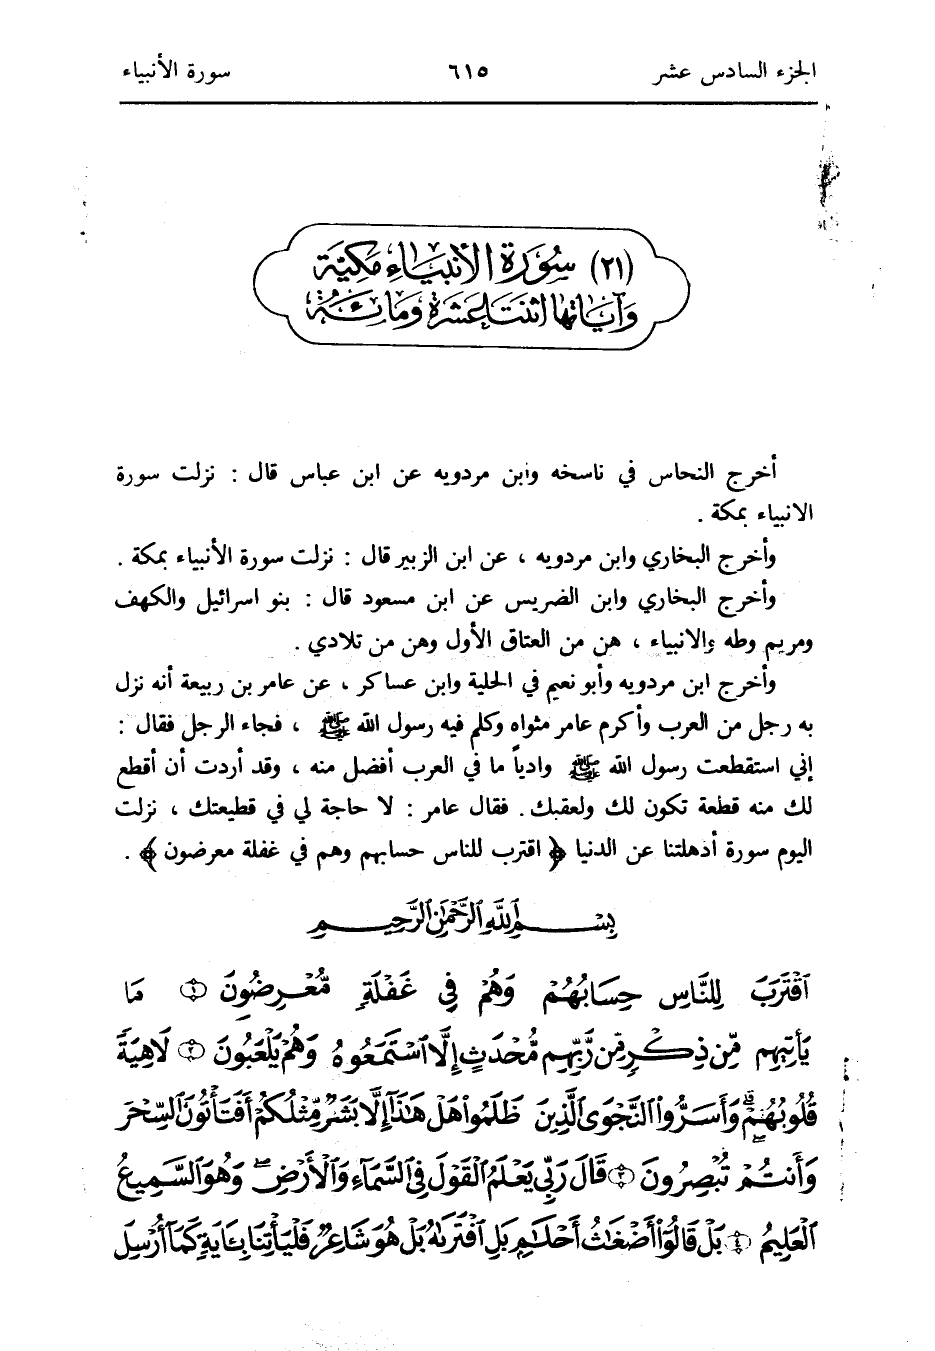 الجزء السادس عشر ٦١٥ سورة الأنبياء
(٢١) سورة الأنبياء مكية
وآياتها اثنتا عشرة ومائة
أخرج النحاس في ناسخه وابن مردويه عن ابن عباس قال : نزلت سورة
الانبياء بمكة .
وأخرج البخاري وابن مردويه ، عن ابن الزبير قال : نزلت سورة الأنبياء بمكة .
وأخرج البخاري وابن الضريس عن ابن مسعود قال : بنو اسرائيل والكهف
ومريم وطه والانبياء ، هن من العتاق الأول وهن من تلادي .
وأخرج ابن مردويه وأبو نعيم في الحلية وابن عساكر ، عن عامر بن ربيعة أنه نزل
به رجل من العرب وأكرم عامر مثواه وكلم فيه رسول الله ﷺ ، فجاء الرجل فقال :
إني استقطعت رسول الله ﷺ وادياً ما في العرب أفضل منه ، وقد أردت أن أقطع
لك منه قطعة تكون لك ولعقبك. فقال عامر : لا حاجة لي في قطيعتك ، نزلت
اليوم سورة أذهلتنا عن الدنيا ﴿ اقترب للناس حسابهم وهم في غفلة معرضون ﴾ .
بِسْمِ اللَّهِ الرَّحْمَٰنِ الرَّحِيمِ
ٱقْتَرَبَ لِلنَّاسِ حِسَابُهُمْ وَهُمْ فِى غَفْلَةٍ مُّعْرِضُونَ ۝١ مَا
يَأْتِيهِم مِّن ذِكْرٍ مِّن رَّبِّهِم مُّحْدَثٍ إِلَّا ٱسْتَمَعُوهُ وَهُمْ يَلْعَبُونَ ۝٢ لَاهِيَةً
قُلُوبُهُمْ ۗ وَأَسَرُّوا۟ ٱلنَّجْوَى ٱلَّذِينَ ظَلَمُوا۟ هَلْ هَٰذَآ إِلَّا بَشَرٌ مِّثْلُكُمْ ۖ أَفَتَأْتُونَ ٱلسِّحْرَ
وَأَنتُمْ تُبْصِرُونَ ۝٣ قَالَ رَبِّى يَعْلَمُ ٱلْقَوْلَ فِى ٱلسَّمَآءِ وَٱلْأَرْضِ ۖ وَهُوَ ٱلسَّمِيعُ
ٱلْعَلِيمُ ۝٤ بَلْ قَالُوٓا۟ أَضْغَٰثُ أَحْلَٰمٍ بَلِ ٱفْتَرَىٰهُ بَلْ هُوَ شَاعِرٌ فَلْيَأْتِنَا بِـَٔايَةٍ كَمَآ أُرْسِلَ